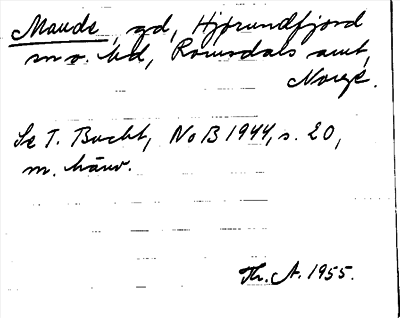 Mande, gd, Hjörundfjord
sn o. hd, Romsdals amt,
Norge.
Se T. Bucht, NoB 1944, s. 20,
m. hänv.
Th. A. 1955.